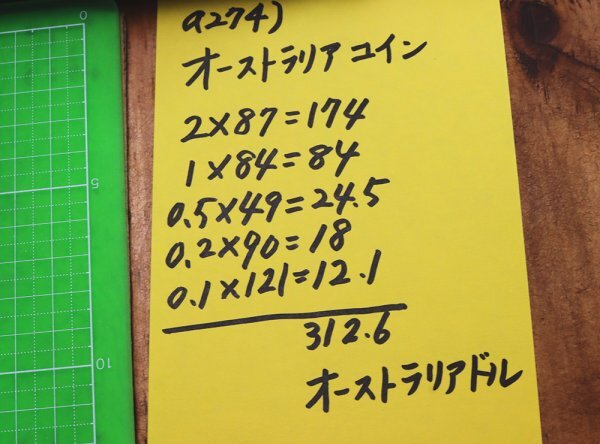 a274)
オーストラリアコイン
2×87=174
1×84=84
0.5×49=24.5
0.2×90=18
0.1×121=12.1
312.6
オーストラリアドル
0
5
10